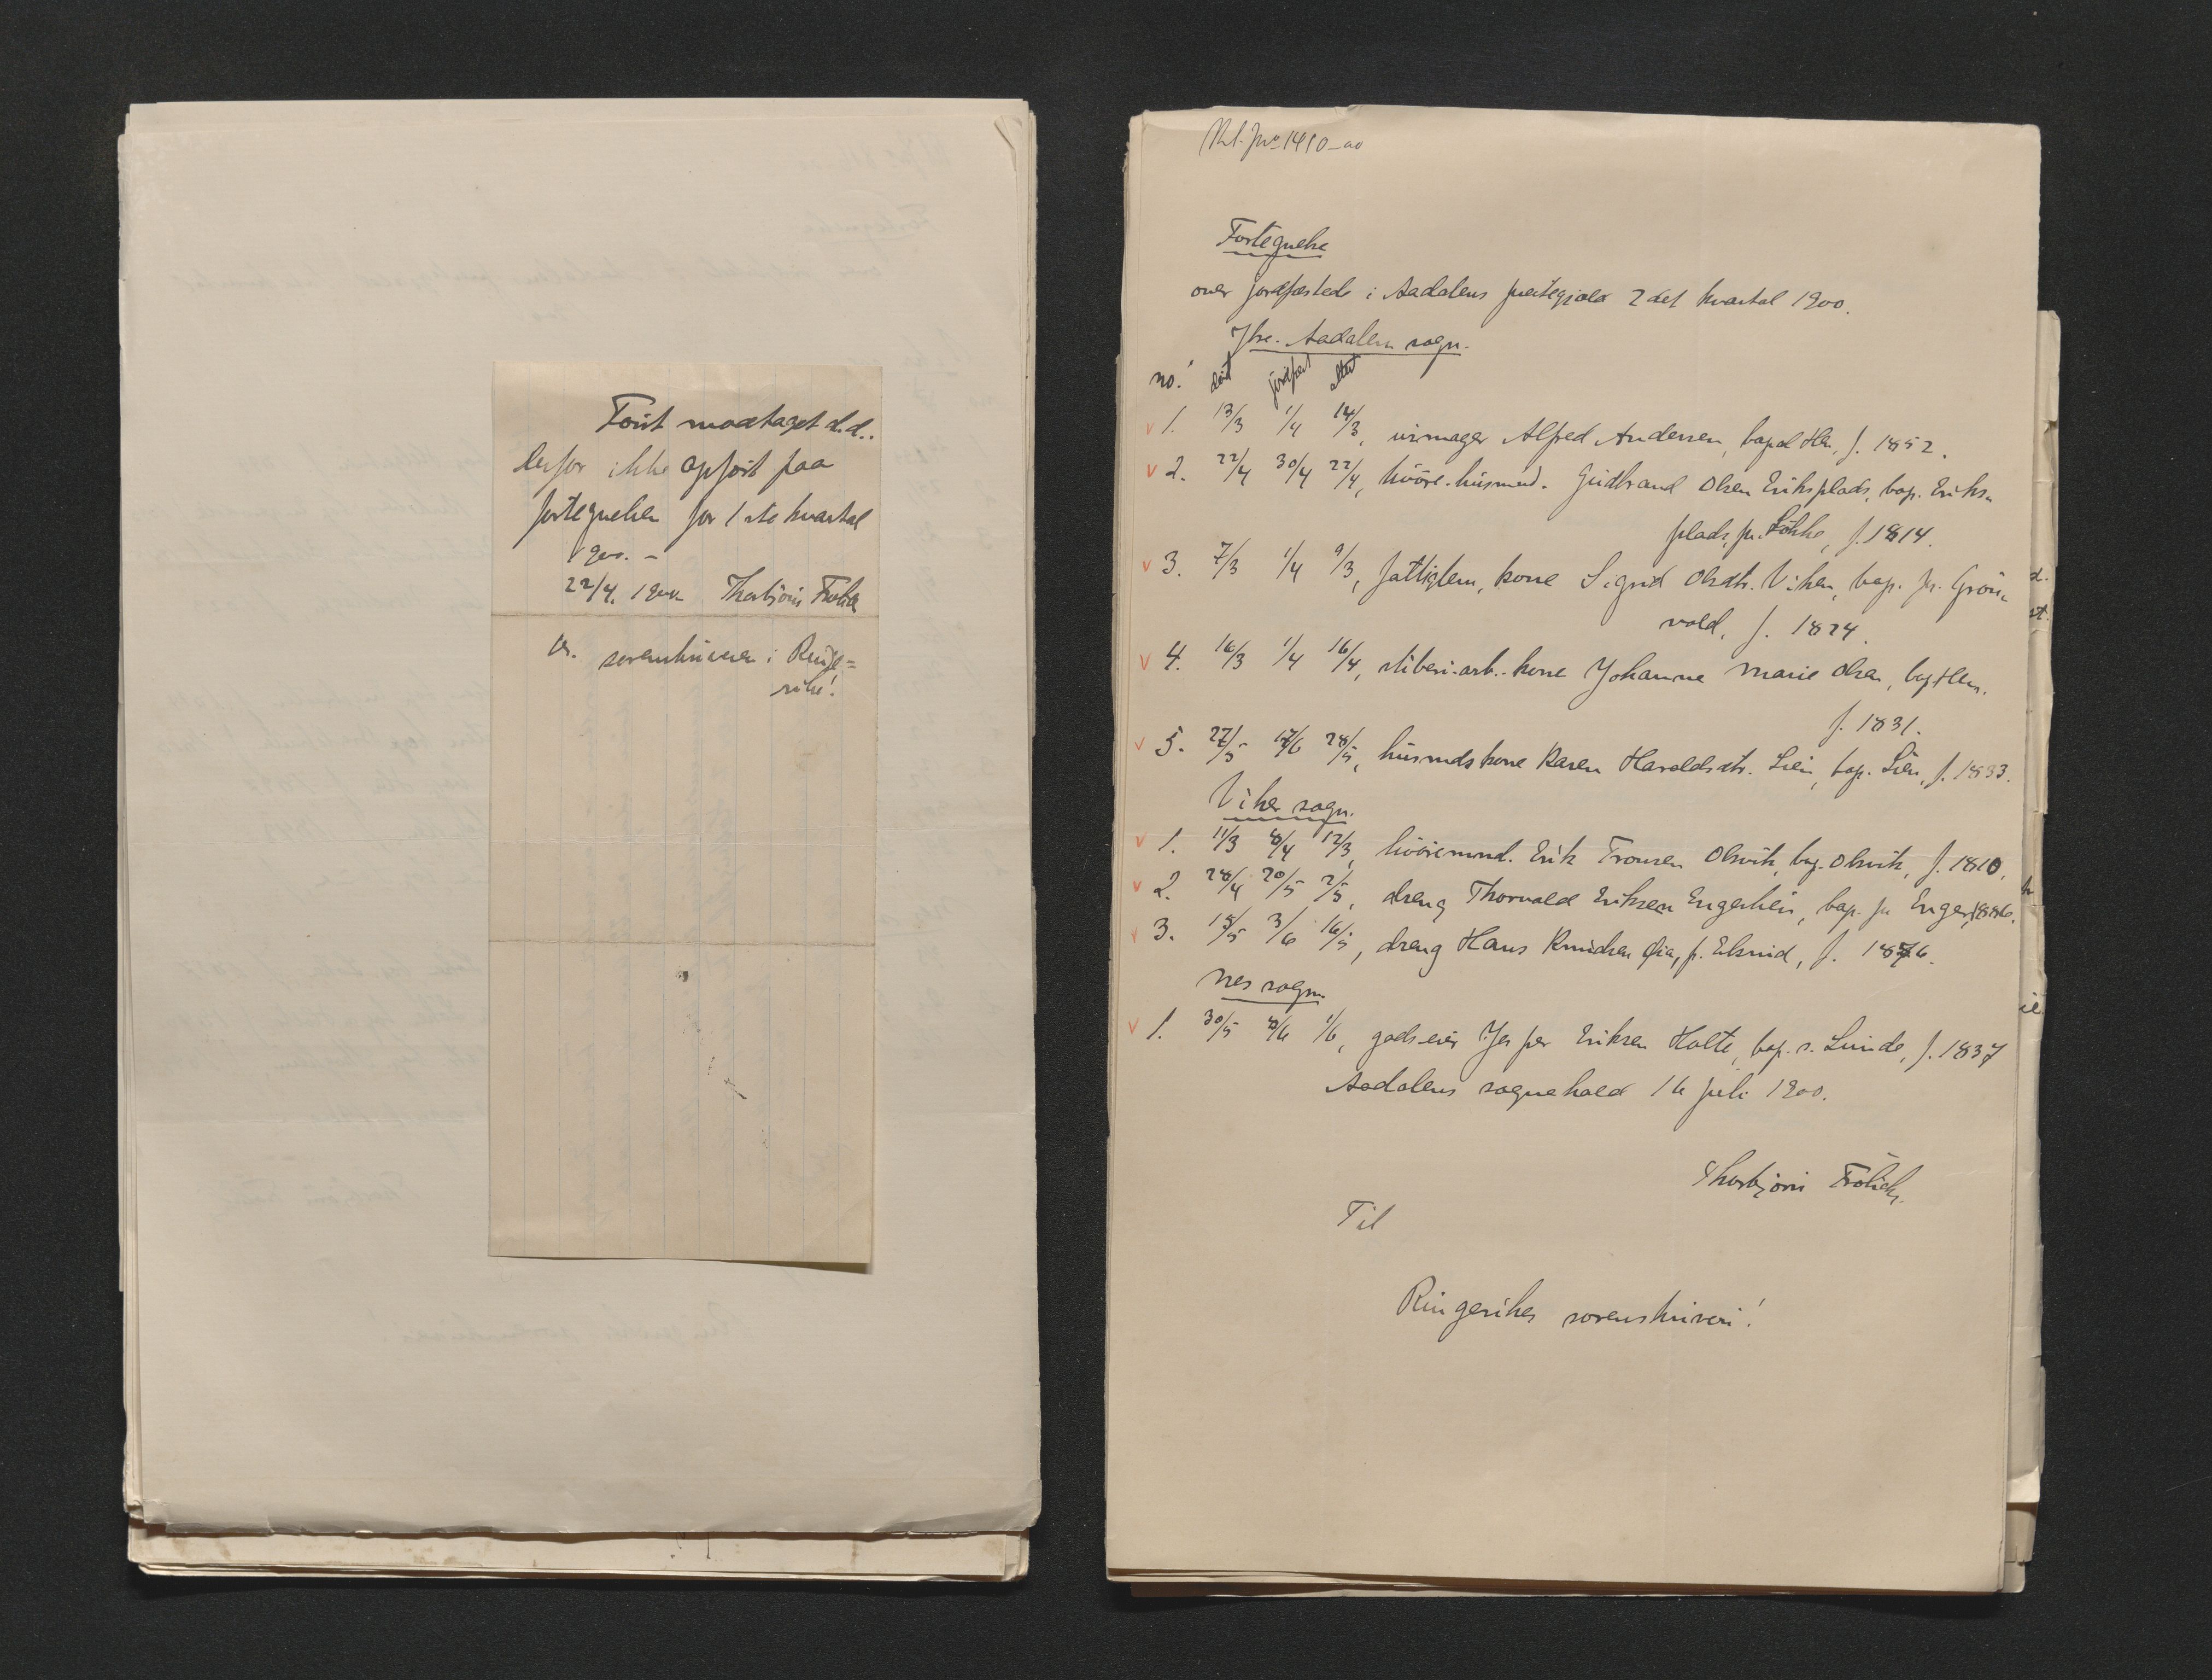 Först modtaget d.d..
derfor ikke opfört paa
fortegnelsen for 1ste kvartal
1900. -
22/4. 1900 Thorbjörn Frölich
sorenskriveren i Ringe=
rike!
No 1410-00
Fortegnelse
over jordfæstede i Aadalens prestegjæld 2det kvartal 1900.
Ytre. Aadalens sogn.
no. död jordfest attest
1. 13/3 1/4 14/3, urmager Alfred Andersen, bopæl Hen, f. 1852.
2. 22/4 30/4 22/4, livöre-husmnd. Gudbrand Olsen Eriksplads, bop. Eriks-
plads, pr. Lökke, f. 1814.
3. 7/3 1/4 9/3, fattiglem, kone Sigrid Olsdtr. Viken, bop. pr. Grön-
vold, f. 1824.
4. 16/3 1/4 16/4, sliberi-arb.-kone Johanne Marie Olsen, bop Hen.
f. 1831.
5. 27/5 17/6 28/5, husmds kone Karen Haroldsdtr. Lien, bop. Lien, f. 1833.
Viker sogn.
1. 11/3 8/4 12/3, livöremnd. Erik Tronsen Olsvik, bop. Olsvik, f. 1810.
2. 28/4 20/5 2/5, dreng Thorvald Eriksen Engerhei, bop. pr Enger, 1886.
3. 15/5 3/6 16/5, dreng Hans Knudsen Øia, p. Elsrud, f. 1876.
Nes sogn.
1. 30/5 8/6 1/6, gods-eier Jesper Eriksen Holte, bop. s. Lunde, f. 1837
Aadalens sognekald 16 juli 1900.
Thorbjörn Frölich.
Til
Ringerikes sorenskriveri!